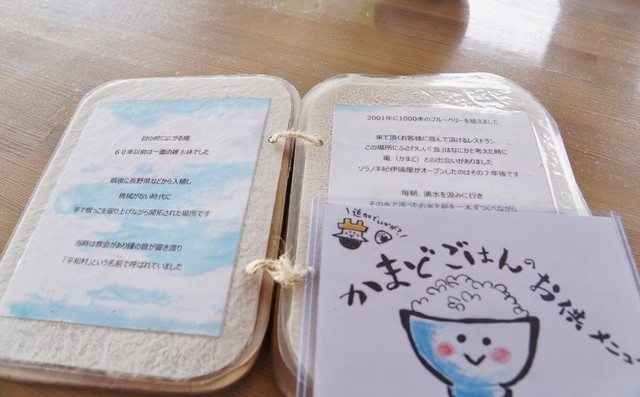 目の前に広がる畑
60年以前は一面の雑木林でした
戦後に長野県などから入植し
機械がない時代に
手で根っこを掘り上げながら開拓された場所です
当時は教会があり鐘の音が響き渡り
「平和村」という名前で呼ばれていました
2001年に1000本のブルーベリーを植えました
来て頂くお客様に喜んで頂けるレストラン
この場所にふさわしい「食」はなにかと考えた時に
竈(かまど)との出会いがありました
ソラノネ紀伊國屋がオープンしたのはその7年後です
毎朝、湧水を汲みに行き
その水で洗ったお米を薪を一本ずつくべながら
追加でいかが?
かまどごはんのお供メニュー